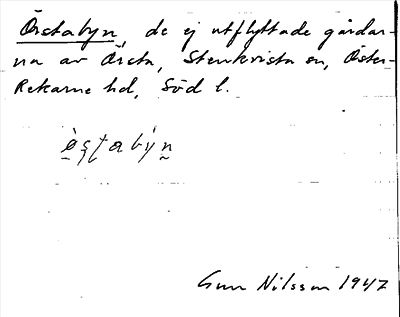 Örstabyn, de ej utflyttade gårdar-
na av Örsta, Stenkvista sn, Öster-
Rekarne hd, Söd l.
ö̀ṣṭabýn
Gun Nilsson 1947